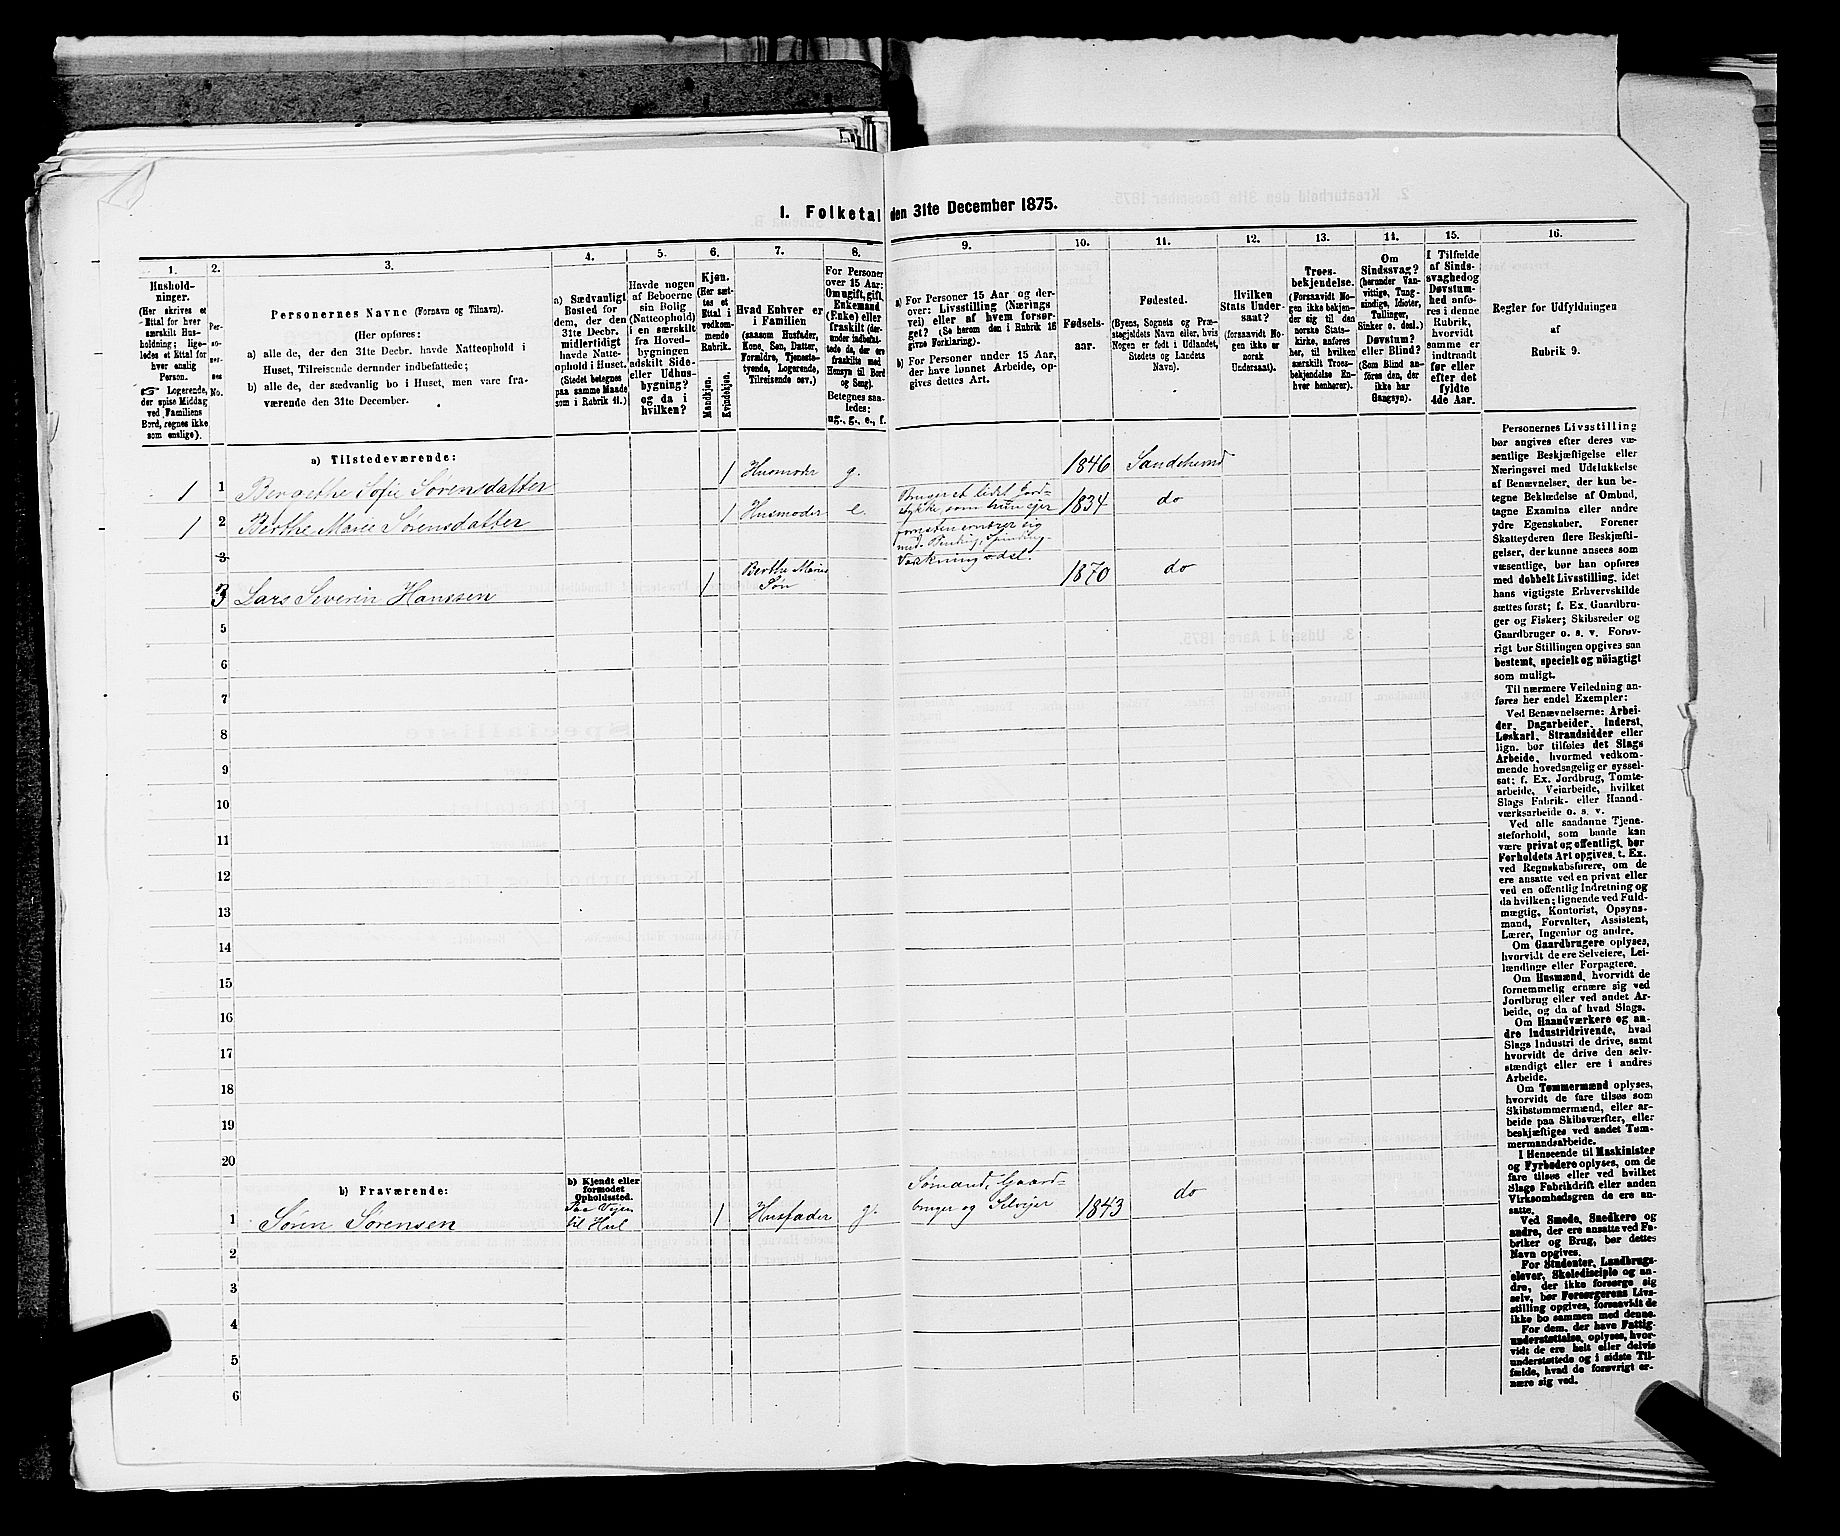 1. Folketal den 31te December 1875.
1.
Hushold-
ninger.
(Her skrives et
Ettal for hver
særskilt Hus-
holdning; lige-
ledes et Ettal for
hver enslig
Person.
Logerende,
der spise Middag
ved Familiens
Bord, regnes ikke
som enslige).
2.
Per-
so-
ner-
nes
No.
3.
Personernes Navne (Fornavn og Tilnavn).
(Her opføres:
a) alle de, der den 31te Decbr. havde Natteophold i
Huset, Tilreisende derunder indbefattede;
b) alle de, der sædvanlig bo i Huset, men vare fra-
værende den 31te December.
4.
a) Sædvanligt
Bosted for
dem, der den
31te Decbr.
midlertidigt
havde Natte-
ophold i Huset.
(Stedet betegnes
paa samme Maade
som i Rubrik 11.)
5.
Havde nogen
af Beboerne
sin Bolig
(Natteophold)
i en særskilt
fra Hoved-
bygningen
adskilt Side-
eller Udhus-
bygning?
og da i
hvilken?
6.
Kjøn.
(Her sæt-
tes et
Ettal i
vedkom-
mende
Rubrik.
Mandkjøn.
Kvindekjøn.
7.
Hvad Enhver er
i Familien
(saasom Husfader,
Kone, Søn, Datter,
Forældre, Tjeneste-
tyende, Logerende,
Tilreisende osv.).
8.
For Personer
over 15 Aar:
Om ugift, gift,
Enkemand
(Enke) eller
fraskilt (der-
under indbefat-
tede de, der ere
fraskilte med
Hensyn til Bord
og Seng).
Betegnes saa-
ledes:
ug., g., e., f.
9.
a) For Personer 15 Aar og der-
over: Livsstilling (Nærings
vei) eller af hvem forsør-
get? (Se herom den i Rubrik 16
givne Forklaring).
b) For Personer under 15 Aar,
der have lønnet Arbeide, op-
gives dettes Art.
10.
Fødsels-
aar.
11.
Fødested.
(Byens, Sognets og Præ-
stegjeldets Navn eller, hvis
Nogen er født i Udlandet,
Stedets og Landets
Navn).
12.
Hvilken
Stats Under-
saat?
(forsaavidt No-
gen ikke er
norsk
Undersaat).
13.
Troes-
bekjendelse.
(Forsaavidt No-
gen ikke bekjen-
der sig til den
norske Stats-
kirke, anføres
her, til hvilken
særskilt Troes-
bekjendelse En-
hver henhører).
14.
Om
Sindssvag?
(herunder Van-
vittige, Tung-
sindige, Idioter,
Tullinger,
Sinker o. desl.)
Døvstum?
eller Blind?
(Som Blind an-
føres den, der
ikke har
Gangsyn).
15.
I Tilfælde
af Sinds-
svaghed og
Døvstum-
hed anfø-
res i denne
Rubrik,
hvorvidt
samme er
indtraadt
før eller
efter det
fyldte
4de Aar.
16.
Regler for Udfyldningen
af
Rubrik 9.
a) Tilstedeværende:
1 1 Bergethe Sofie Sørensdatter 1 Husmoder g. 1846 Sandeherred
1 2 Berthe Marie Sørensdatter 1 Husmoder e. Bruger et lidet Jord-
stykke, som hun ejer
forresten ernærer sig
med
Vaskning o dsl. 1834 do
3
3 Lars Severin Hanssen 1 Berthe Maries
Søn 1870 do
5
6
7
8
9
10
11
12
13
14
15
16
17
18
19
20
b) Fraværende:
b) Kjendt eller
formodet
Opholdssted.
1 Søren Sørensen Paa Vejen
til Hul 1 Husfader g. Sømand, Gaard-
bruger og Selvejer 1843 do
2
3
4
5
6
Personernes Livsstilling
bør angives efter deres væ-
sentlige Beskjæftigelse eller
Næringsvei med Udelukkelse
af Benævnelser, der kun be-
tegne Beklædelse af Ombud,
tagne Examina eller andre
ydre Egenskaber. Forener
Skatteyderen flere Beskjæfti-
gelser, der kunne ansees som
væsentlige, bør han opføres
med dobbelt Livsstilling, idet
hans vigtigste Erhvervskilde
sættes først; f. Ex. Gaardbru-
ger og Fisker; Skibsreder og
Gaardbruger o. s. v. Forøv-
rigt bør Stillingen opgives saa
bestemt, specielt og nöiagtigt
som muligt.
Til nærmere Veiledning an-
føres her endel Exempler:
Ved Benævnelserne: Arbei-
der, Dagarbeider, Inderst,
Løskarl, Strandsidder eller
lign. bør tilføies det Slags
Arbeide, hvormed vedkom-
mende hovedsagelig er syssel-
sat; f. Ex. Jordbrug, Tomte-
arbeide, Veiarbeide, hvilket
Slags Fabrik- eller Haand-
værksarbeide o. s. v.
Ved alle saadanne Tjene-
steforhold, som baade kan
være privat og offentligt, bør
Forholdets Art opgives, t. Ex.
ved Regnskabsførere, om de
ere ansatte ved en privat eller
ved en offentlig Indretning og
da hvilken; lignende ved Fuld-
mægtig, Kontorist, Opsyns-
mand, Forvalter, Assistent,
Lærer, Ingeniør og andre.
Om Gaardbrugere oplyses,
hvorvidt de ere Selveiere, Lei-
lændinge eller Forpagtere.
Om Husmænd, hvorvidt de
fornemmelig ernære sig ved
Jordbrug eller ved andet Ar-
beide, og da af hvad Slags.
Om Haandværkere og an-
dre industridrivende, hvad
Slags Industri de drive, samt
hvorvidt de drive den selv-
stændigt eller ere i andres
Arbeide.
Om Tømmermænd oplyses,
hvorvidt de fare tilsøs som
Skibstømmermænd, eller ar-
beide paa Skibsværfter, eller
beskjæftiges ved andet Tøm-
mermandsarbeide.
I Henseende til Maskinister
og Fyrbødere oplyses, om de
fare tilsøs eller ved hvilket
Slags Fabrikdrift eller anden
Virksomhedsgren de ere an-
satte.
Ved Smede, Snedkere og
andre, der ere ansatte ved Fa-
briker og Brug, bør dettes
Navn opgives.
For Studenter, Landbrugs-
elever, Skoledisciple og an-
dre, der ikke forsørge sig
selv, bør Forsørgerens Livs-
stilling opgives, forsaavidt de
ikke bo sammen med denne.
For dem, der have Fattig-
understøttelse, oplyses, hvor-
vidt de ere helt eller delvis
understøttede og i sidste Til-
fælde, hvad de forøvrigt er-
nære sig ved.